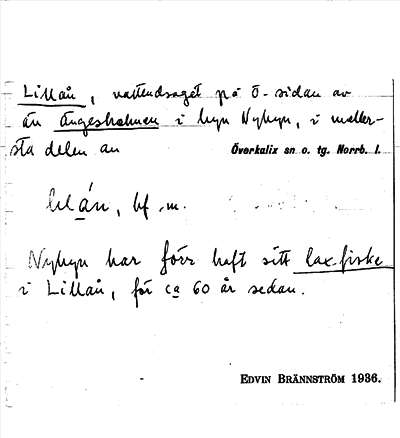 Lillån, vattendraget på ö-sidan av
ån Ängesholmen i byn Nybyn, i meller-
sta delen av Överkalix sn o. tg. Norrb. l.
lılån, bf. m.
Nybyn har förr haft sitt laxfiske
i Lillån, för ca 60 år sedan.
EDVIN BRÄNNSTRÖM 1936.